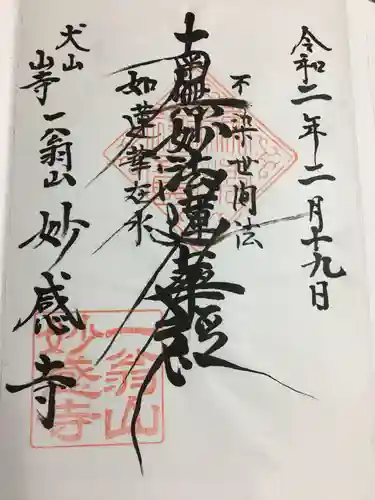 令和二年二月十九日
不染世間法
南無妙法蓮華経
如蓮華在水
犬山
山寺
一翁山
妙感寺
一翁山
妙感寺